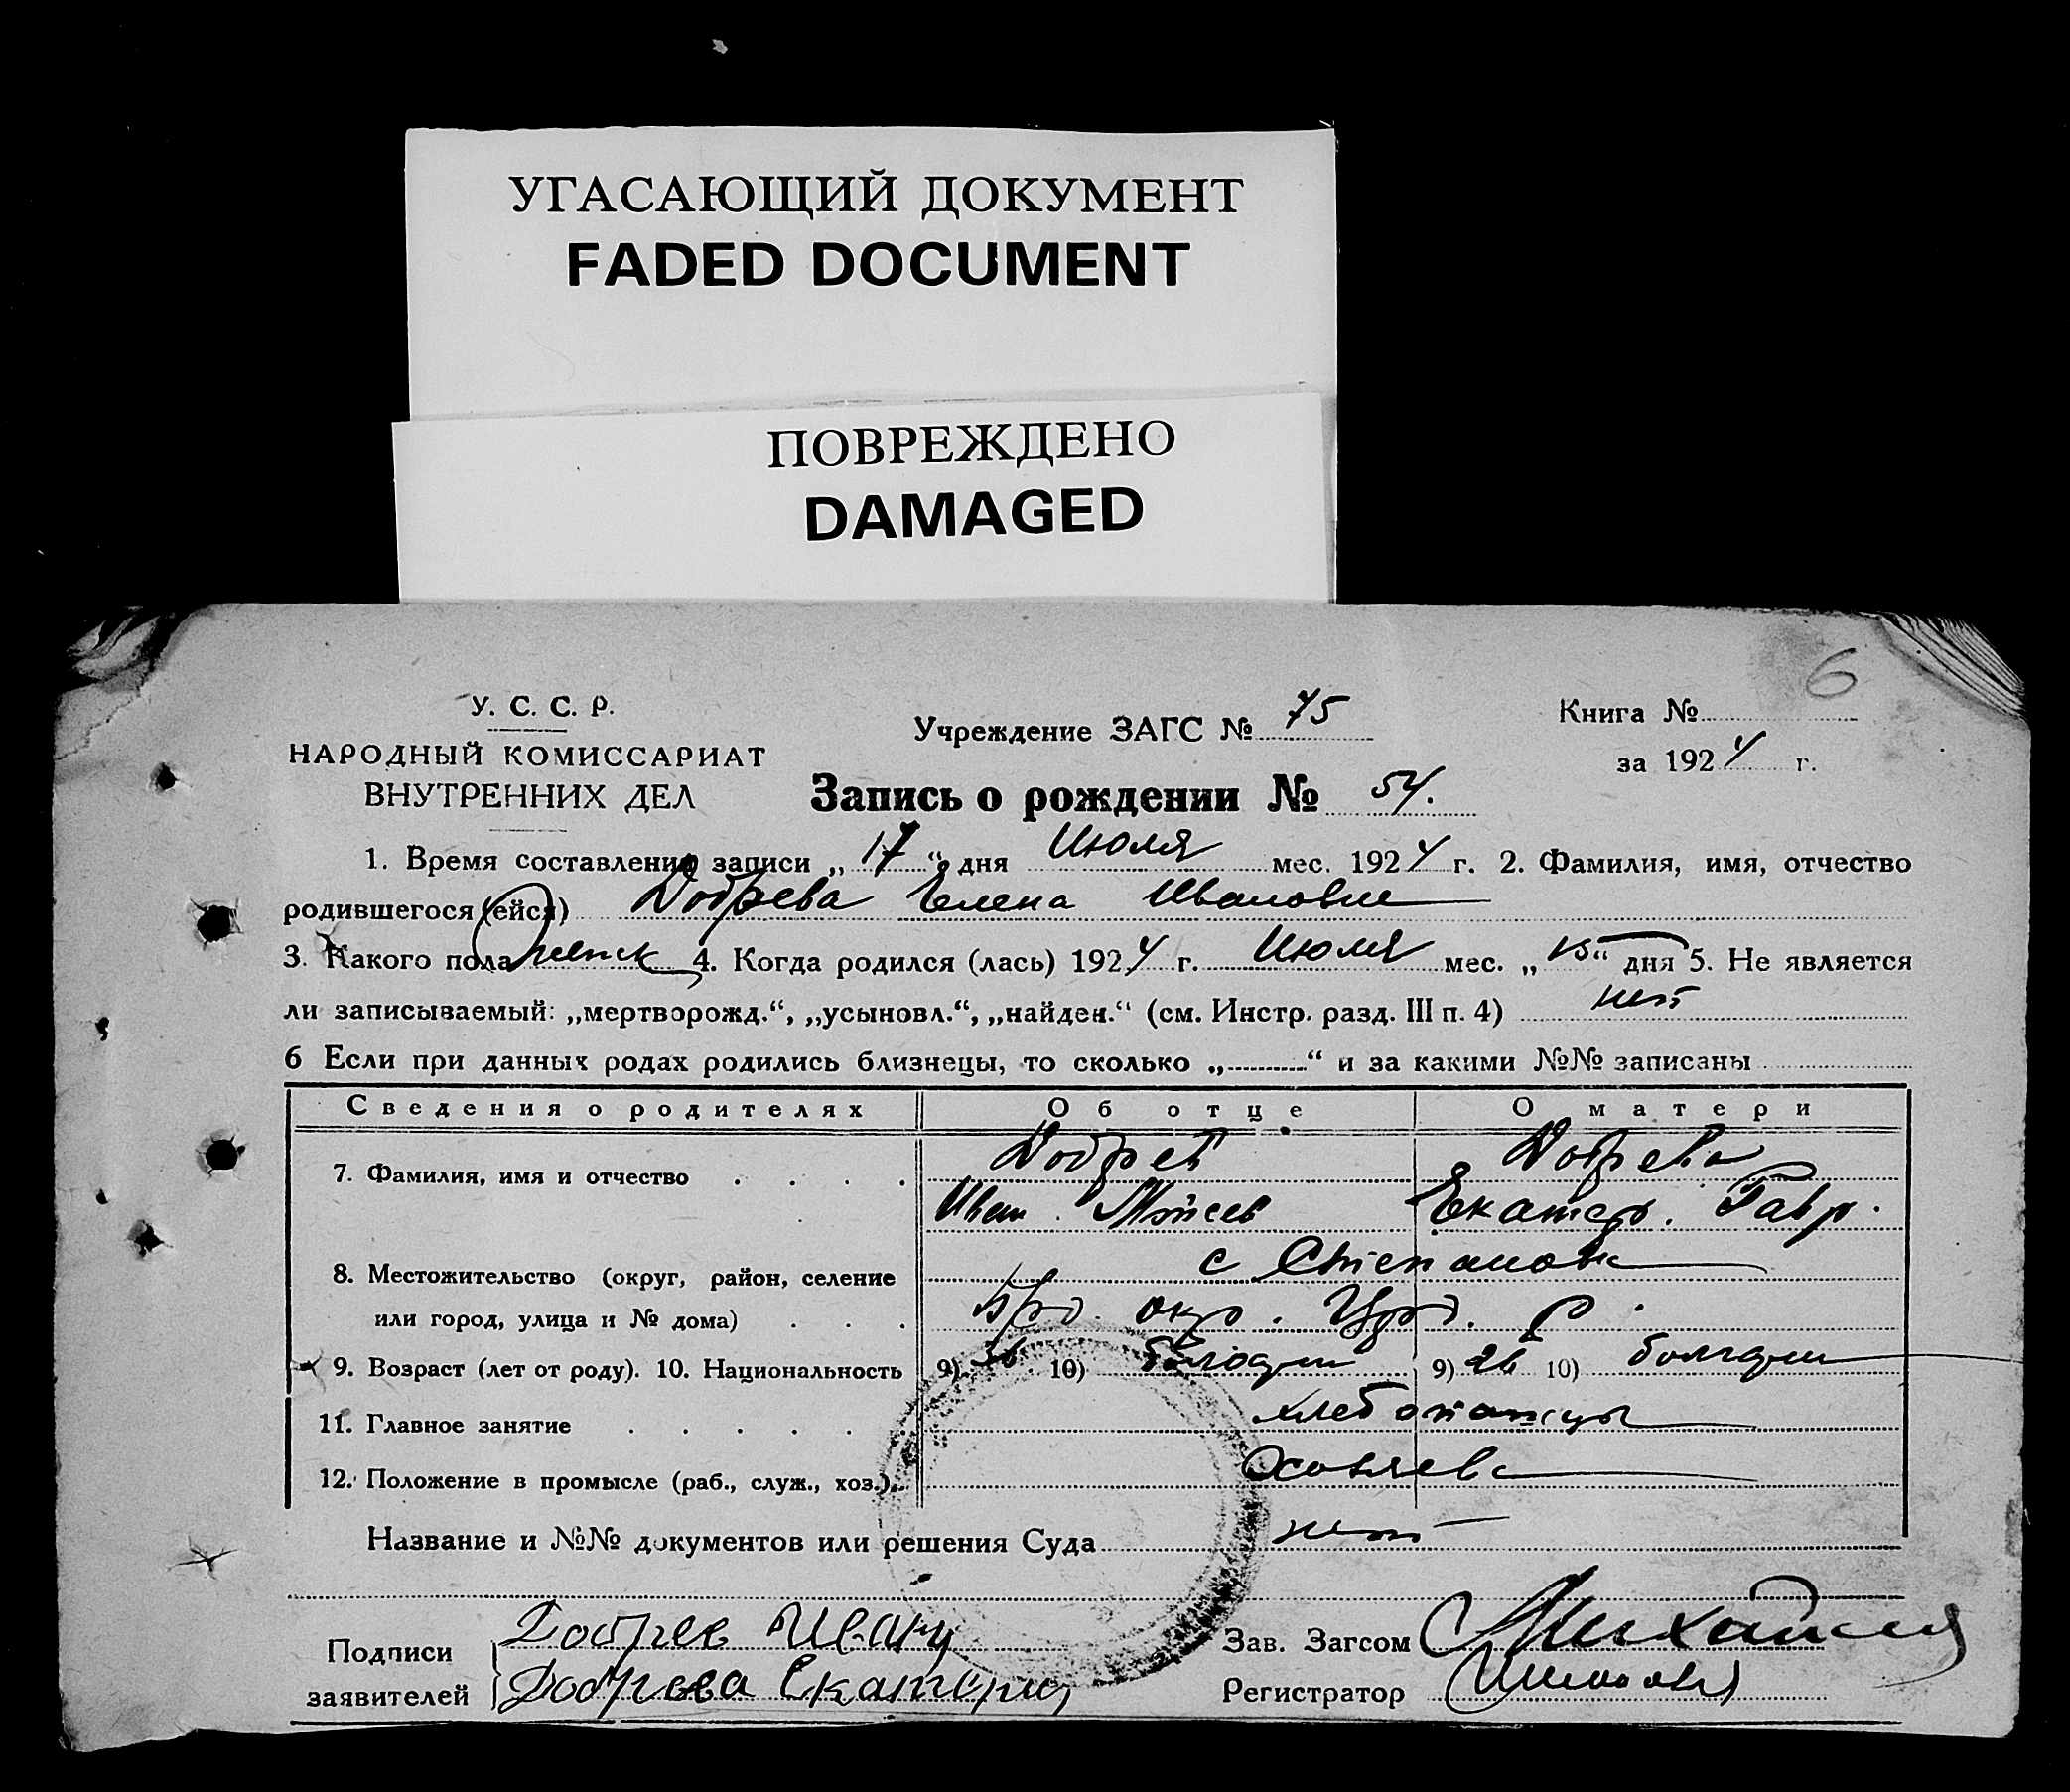 УГАСАЮЩИЙ ДОКУМЕНТ
FADED DOCUMENT
ПОВРЕЖДЕНО
DAMAGED
6
У. С. С. Р.
НАРОДНЫЙ КОМИССАРИАТ
ВНУТРЕННИХ ДЕЛ
Учреждение ЗАГС № 75
Книга №
за 1924 г.
Запись о рождении № 54.
1. Время составления записи „17“ дня Июля мес. 1924 г. 2. Фамилия, имя, отчество
родившегося (ейся) Добрева Елена Ивановне
3. Какого пола женск 4. Когда родился (лась) 1924 г. Июля мес. „15“ дня 5. Не является
ли записываемый: „мертворожд.“, „усыновл.“, „найден.“ (см. Инстр. разд. III п. 4) нет
6 Если при данных родах родились близнецы, то сколько „..........“ и за какими №№ записаны
Сведения о родителях Об отце О матери
7. Фамилия, имя и отчество . . . . Добрев Добрева
Иван Мойсев Екатер. Гавр.
8. Местожительство (округ, район, селение с Степановк
или город, улица и № дома) . . . окр. р.
9. Возраст (лет от роду). 10. Национальность 9) 36 10) болгари 9) 26 10) болгари
11. Главное занятие . . . . . хлебопашцы
12. Положение в промысле (раб., служ., хоз.).
Название и №№ документов или решения Суда нет
Подписи заявителей Добрев Иван
Добрева Екатери
Зав. Загсом
Регистратор